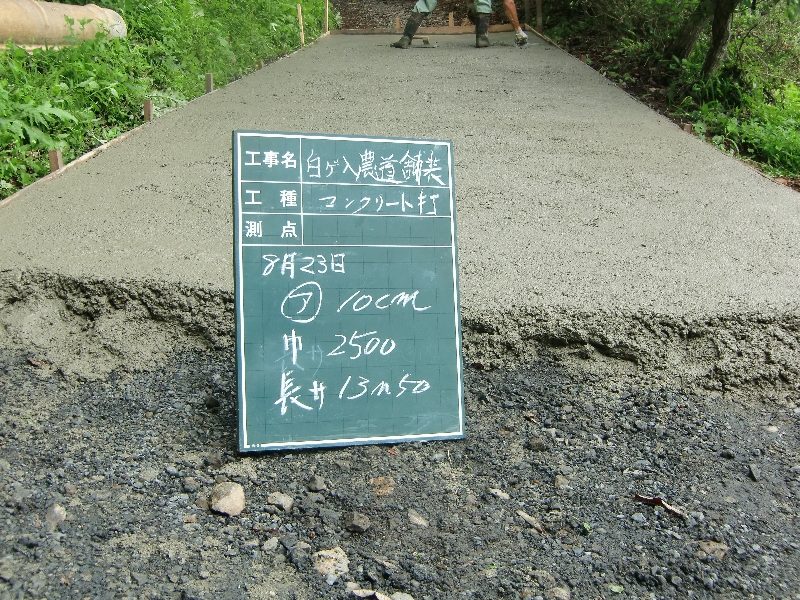 工事名 白ゲ入農道舗装
工種 コンクリート打
測点
8月23日
ア 10cm
巾 2500
長サ 13m50